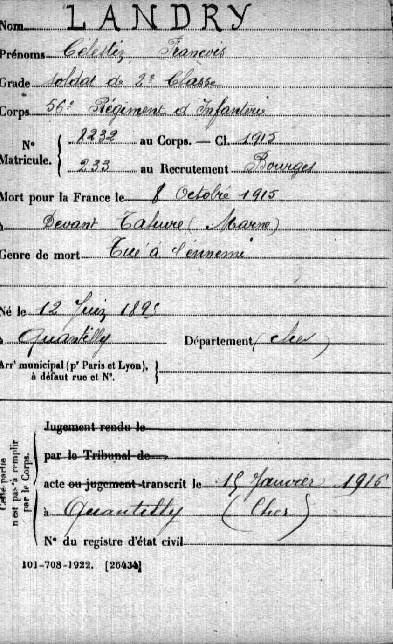 Nom LANDRY
Prénoms Célestin François
Grade soldat de 2e Classe
Corps 56e Régiment d'Infanterie
No Matricule. { 8232 au Corps. — Cl. 1915
233 au Recrutement Bourges
Mort pour la France le 8 Octobre 1915
à Devant Tahure (Marne)
Genre de mort Tué à l'ennemi
Né le 12 Juin
à Quantilly Département (Cher)
Arrt municipal (pr Paris et Lyon), à défaut rue et No. }
Cette partie n'est pas à remplir par le Corps.
Jugement rendu le
par le Tribunal de
acte ou jugement transcrit le 15 Janvier 1916
à Quantilly (Cher)
No du registre d'état civil
101-708-1922. [26434]